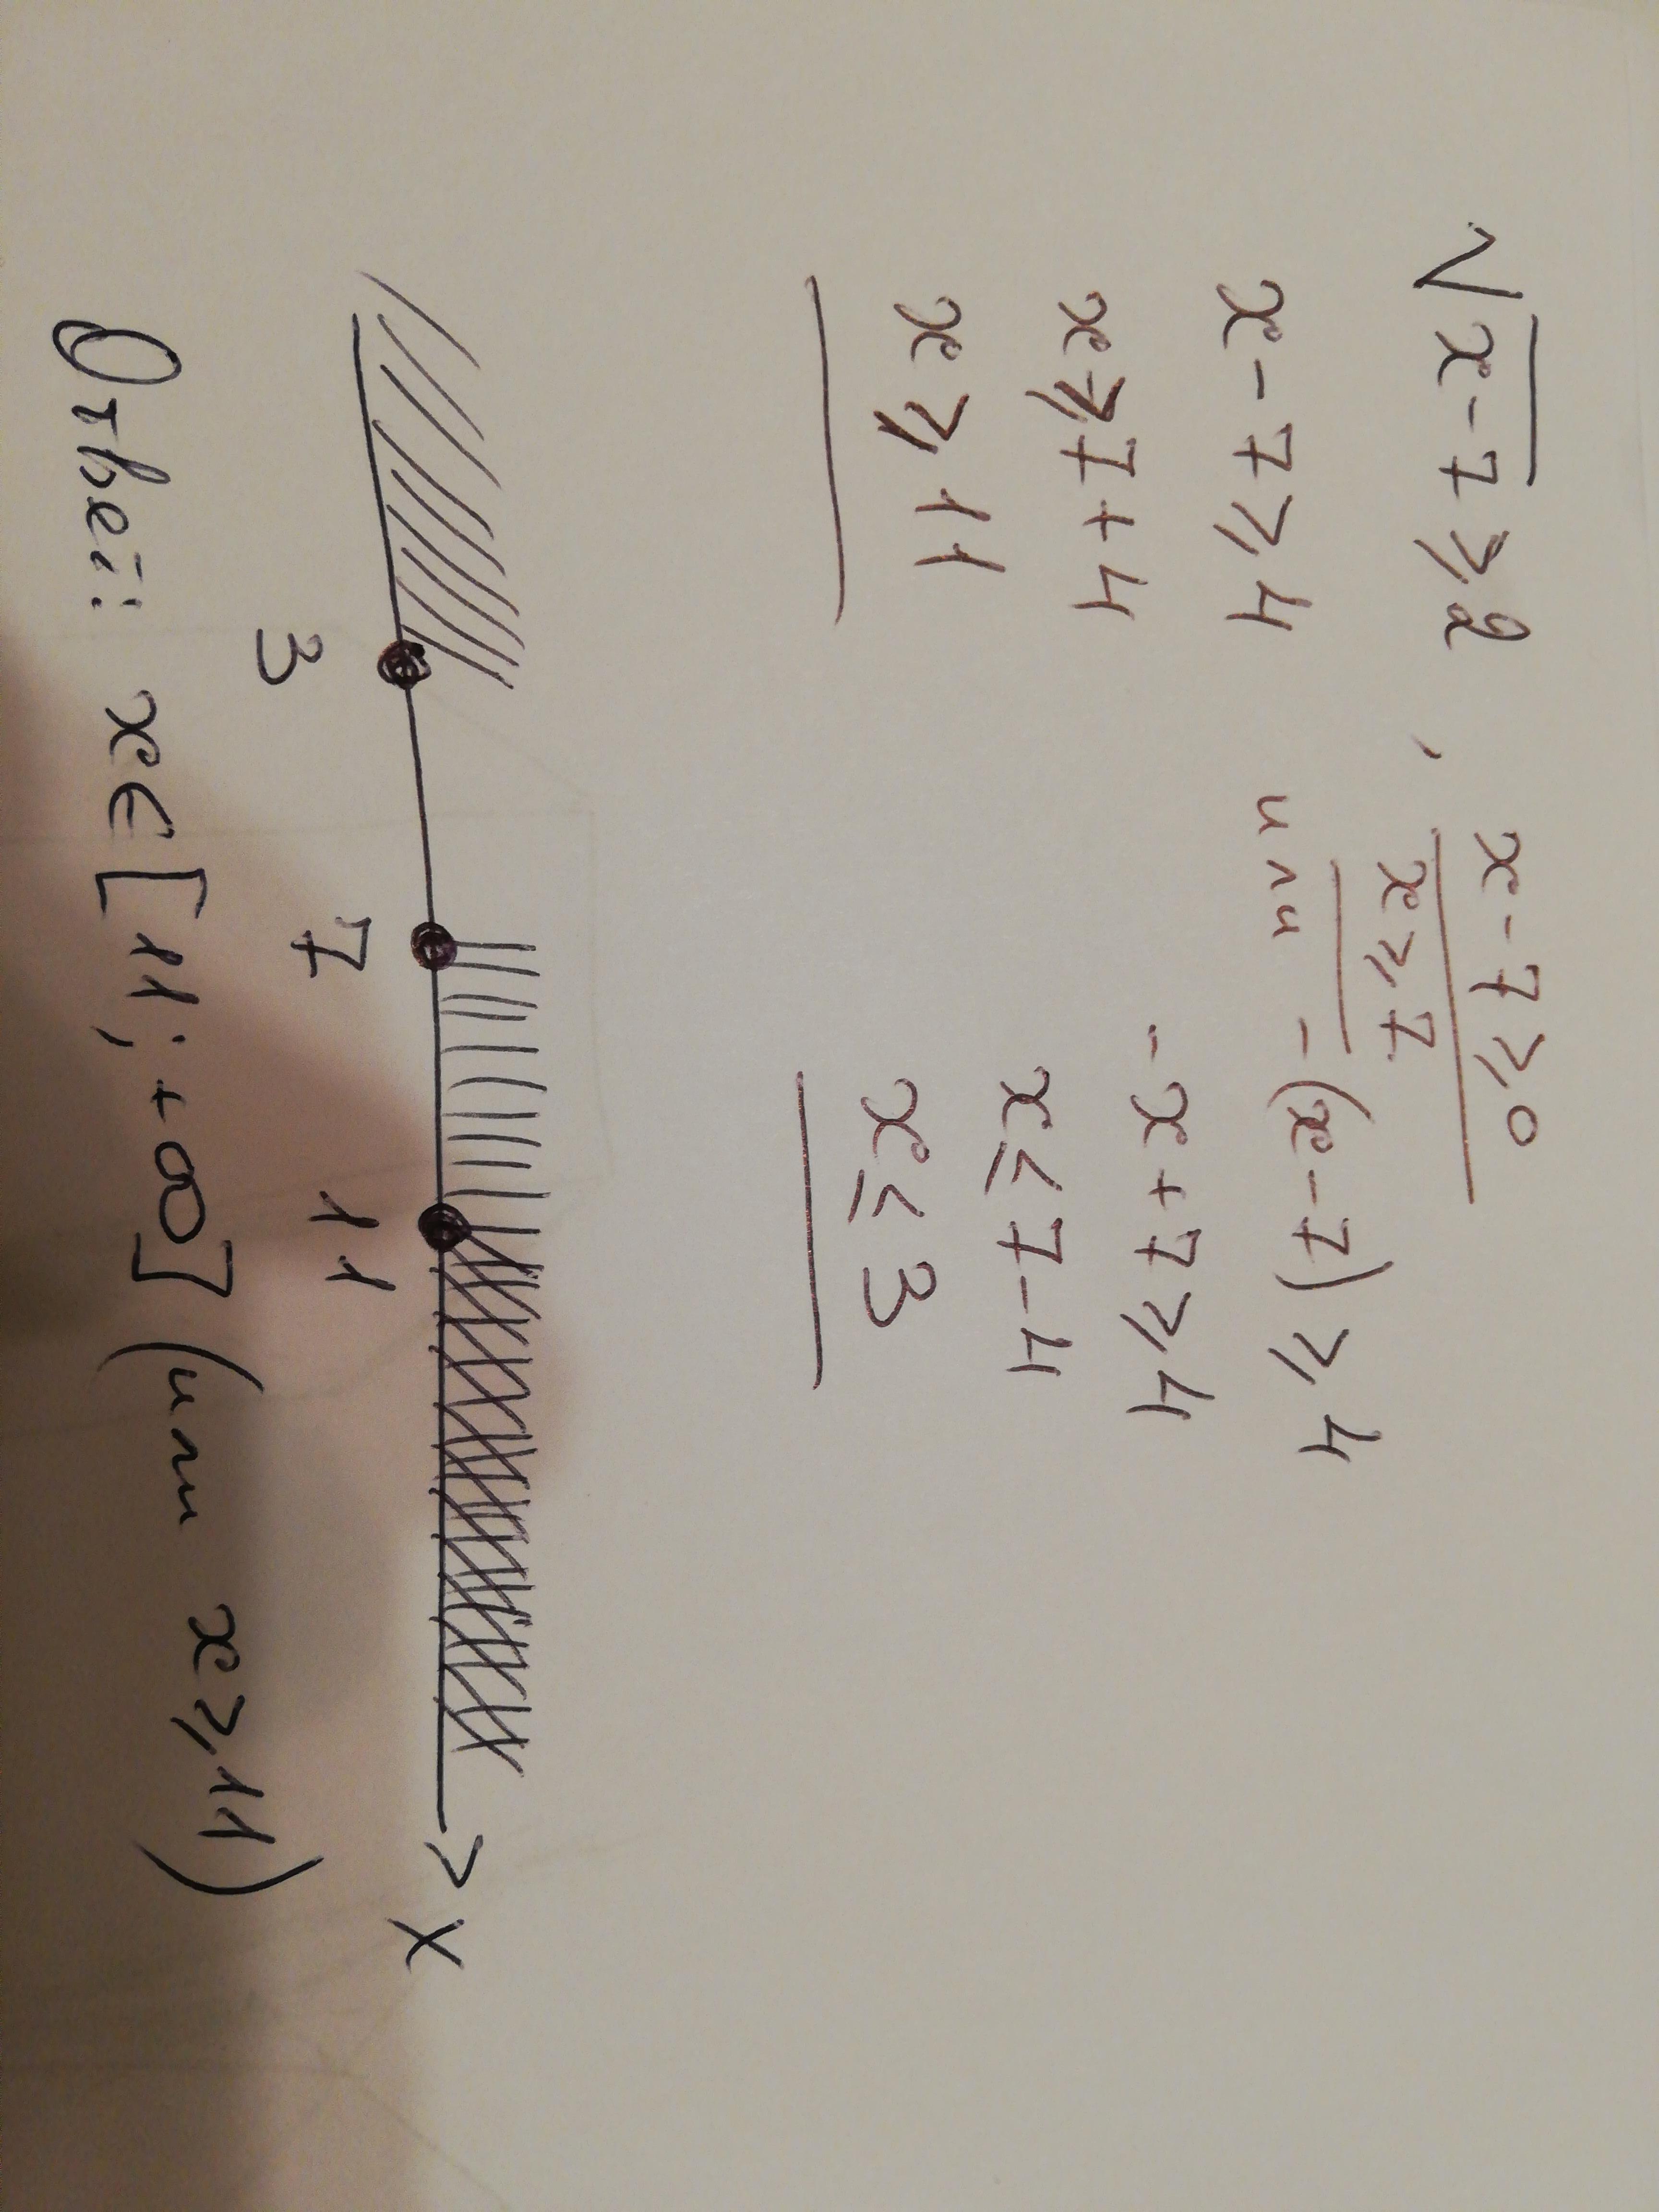 √x-7 ⩾ 2 , x-7 ⩾ 0
x ⩾ 7
x-7 ⩾ 4 или -(x-7) ⩾ 4
x ⩾ 7+4 -x+7 ⩾ 4
x ⩾ 11 x ≤ 7-4
x ≤ 3
3 7 11 x
Ответ: x∈[11; +∞] (или x ⩾ 11)